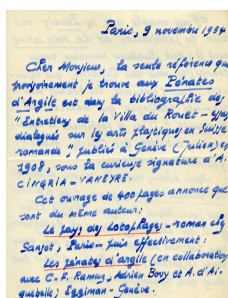 Paris, 9 novembre 1984
Cher Monsieur, la seule référence que
je trouve aux Pénates
d'Argile est dans la bibliographie des
"Entretiens de la Villa du Rouet - Essais
dialogués sur les arts plastiques en Suisse
romande", publiés à Genève (Jullien) en
1908, sous la curieuse signature d'A.
CINGRIA-VANEYRE.
Cet ouvrage de 400 pages annonce que
sont du même auteur:
Le pays des Lotophages - roman
Sansot, Paris - puis effectivement:
Les pénates d'argile (en collaboration
avec C.-F. Ramuz, Adrien Bovy et A. d'Ai-
guebelle) Eggiman - Genève.